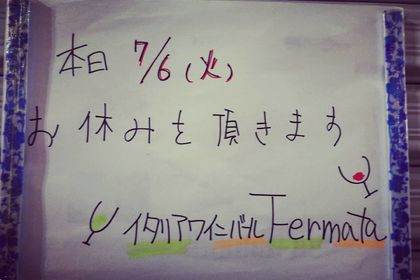 本日 7/6(火)
お休みを頂きます
イタリアワインバール Fermata